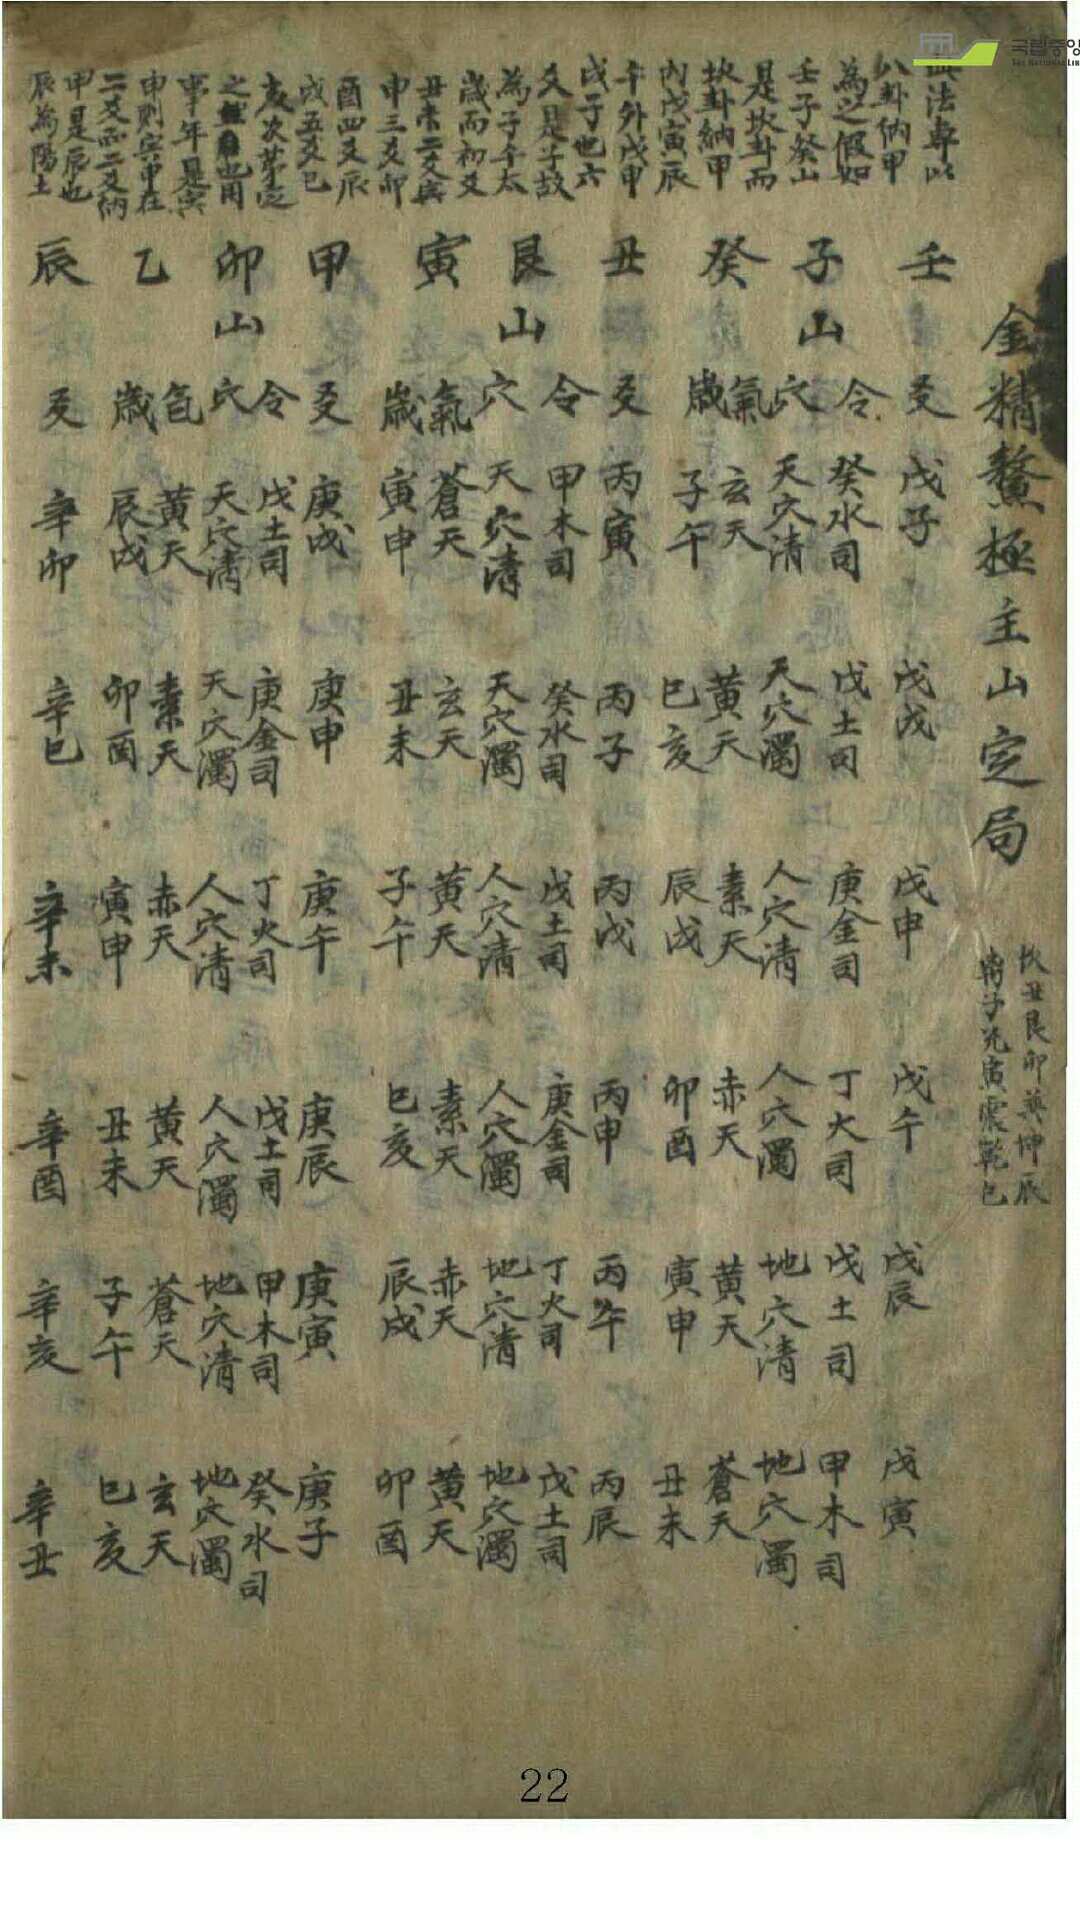 국립중앙
THE NATIONAL LIB
法專以
八卦納甲
為之假如
壬子癸山
是坎卦而
坎卦納甲
內戊寅辰
午外戊申
戌子也六
爻是子故
為子午太
歲而初爻
丑未二爻寅
申三爻卯
酉四爻辰
戌五爻巳
亥次苐定
之
也用
事年是寅
申則寅申在
二爻而二爻納
甲是辰也
辰為陽土
金精鰲極主山定局
坎丑艮卯巽坤辰
离子兌寅震乾巳
壬 子山 癸 丑 艮山 寅 甲 卯山 乙 辰
爻 戊子 戊戌 戊申 戊午 戊辰 戊寅
令 癸水司 戊土司 庚金司 丁火司 戊土司 甲木司
穴 天穴清 天穴濁 人穴清 人穴濁 地穴清 地穴濁
氣 玄天 黃天 素天 赤天 黃天 蒼天
歲 子午 巳亥 辰戌 卯酉 寅申 丑未
爻 丙寅 丙子 丙戌 丙申 丙午 丙辰
令 甲木司 癸水司 戊土司 庚金司 丁火司 戊土司
穴 天穴清 天穴濁 人穴清 人穴濁 地穴清 地穴濁
氣 蒼天 玄天 黃天 素天 赤天 黃天
歲 寅申 丑未 子午 巳亥 辰戌 卯酉
爻 庚戌 庚申 庚午 庚辰 庚寅 庚子
令 戊土司 庚金司 丁火司 戊土司 甲木司 癸水司
穴 天穴清 天穴濁 人穴清 人穴濁 地穴清 地穴濁
黃天 素天 赤天 黃天 蒼天 玄天
歲 辰戌 卯酉 寅申 丑未 子午 巳亥
爻 辛卯 辛巳 辛未 辛酉 辛亥 辛丑
22